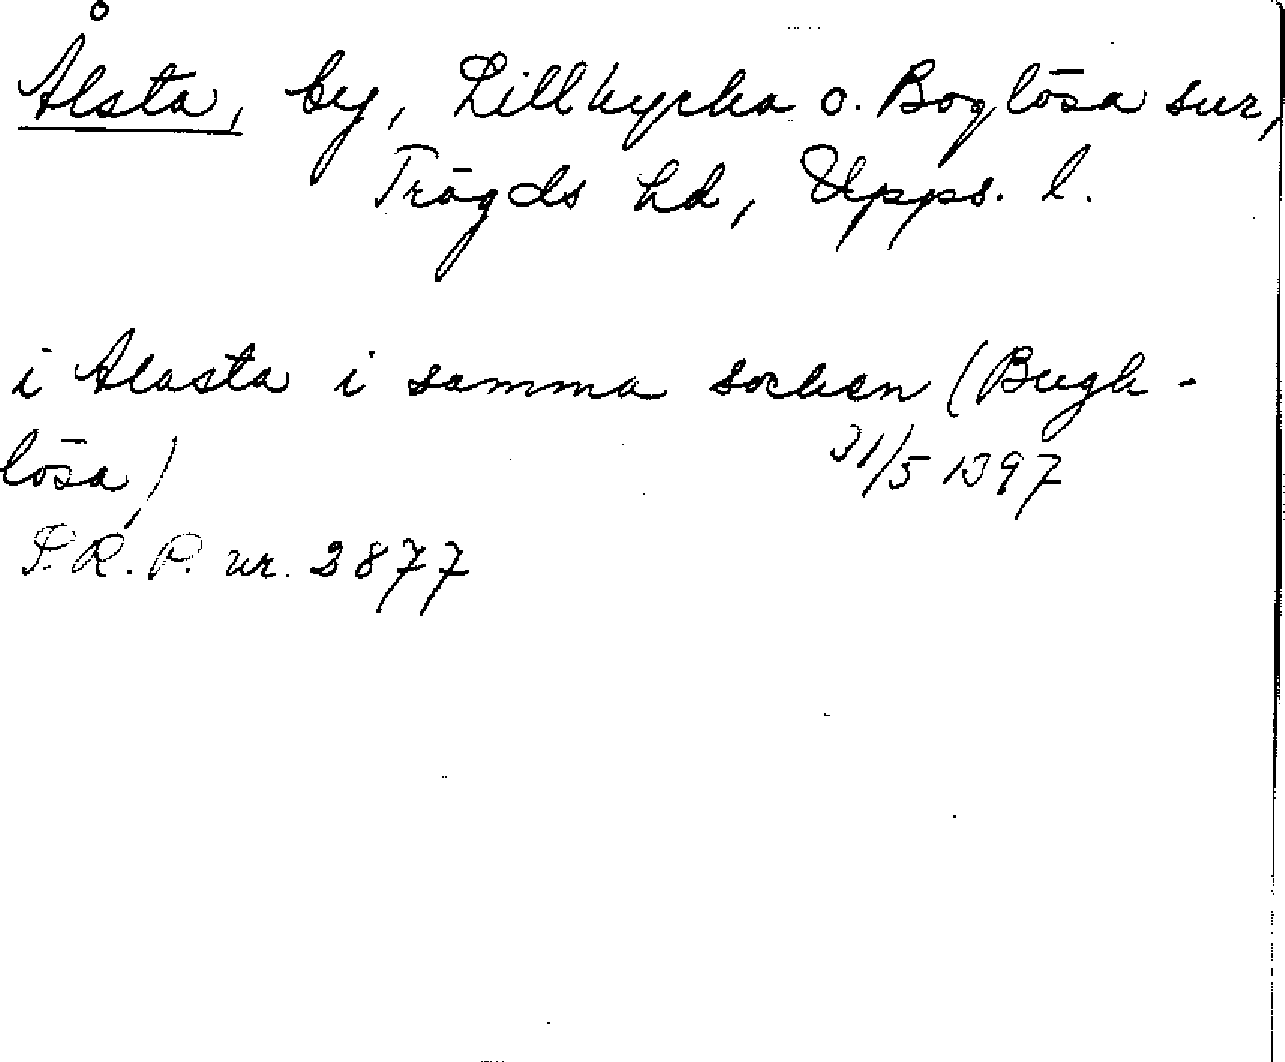 Ålsta, by, Lillkyrka o. Boglösa snr,
Trögds hd, Upps. l.
i Alasta i samma socken (Bugh-
lösa) 31/5 1397
S.R.P. nr. 2877